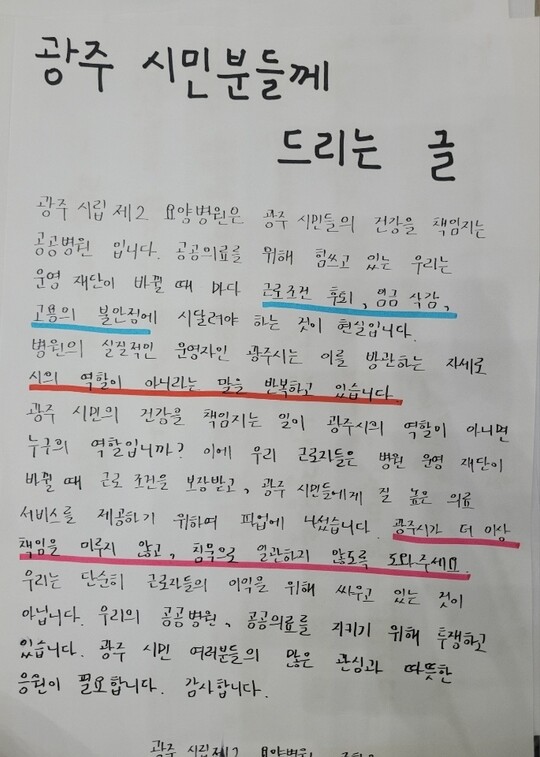 광주 시민분들께
드리는 글
광주 시립 제2 요양병원은 광주 시민들의 건강을 책임지는
공공병원 입니다. 공공의료를 위해 힘쓰고 있는 우리는
운영 재단이 바뀔 때 마다 근로조건 후퇴, 임금 삭감,
고용의 불안정에 시달려야 하는 것이 현실입니다.
병원의 실질적인 운영자인 광주시는 이를 방관하는 자세로
시의 역할이 아니라는 말을 반복하고 있습니다.
광주 시민의 건강을 책임지는 일이 광주시의 역할이 아니면
누구의 역할입니까? 이에 우리 근로자들은 병원 운영 재단이
바뀔 때 근로 조건을 보장받고, 광주 시민들에게 질 높은 의료
서비스를 제공하기 위하여 파업에 나섰습니다. 광주시가 더 이상
책임을 미루지 않고, 침묵으로 일관하지 않도록 도와주세요.
우리는 단순히 근로자들의 이익을 위해 싸우고 있는 것이
아닙니다. 우리의 공공병원, 공공의료를 지키기 위해 투쟁하고
있습니다. 광주 시민 여러분들의 많은 관심과 따뜻한
응원이 필요합니다. 감사합니다.
광주 시립제2 요양병원